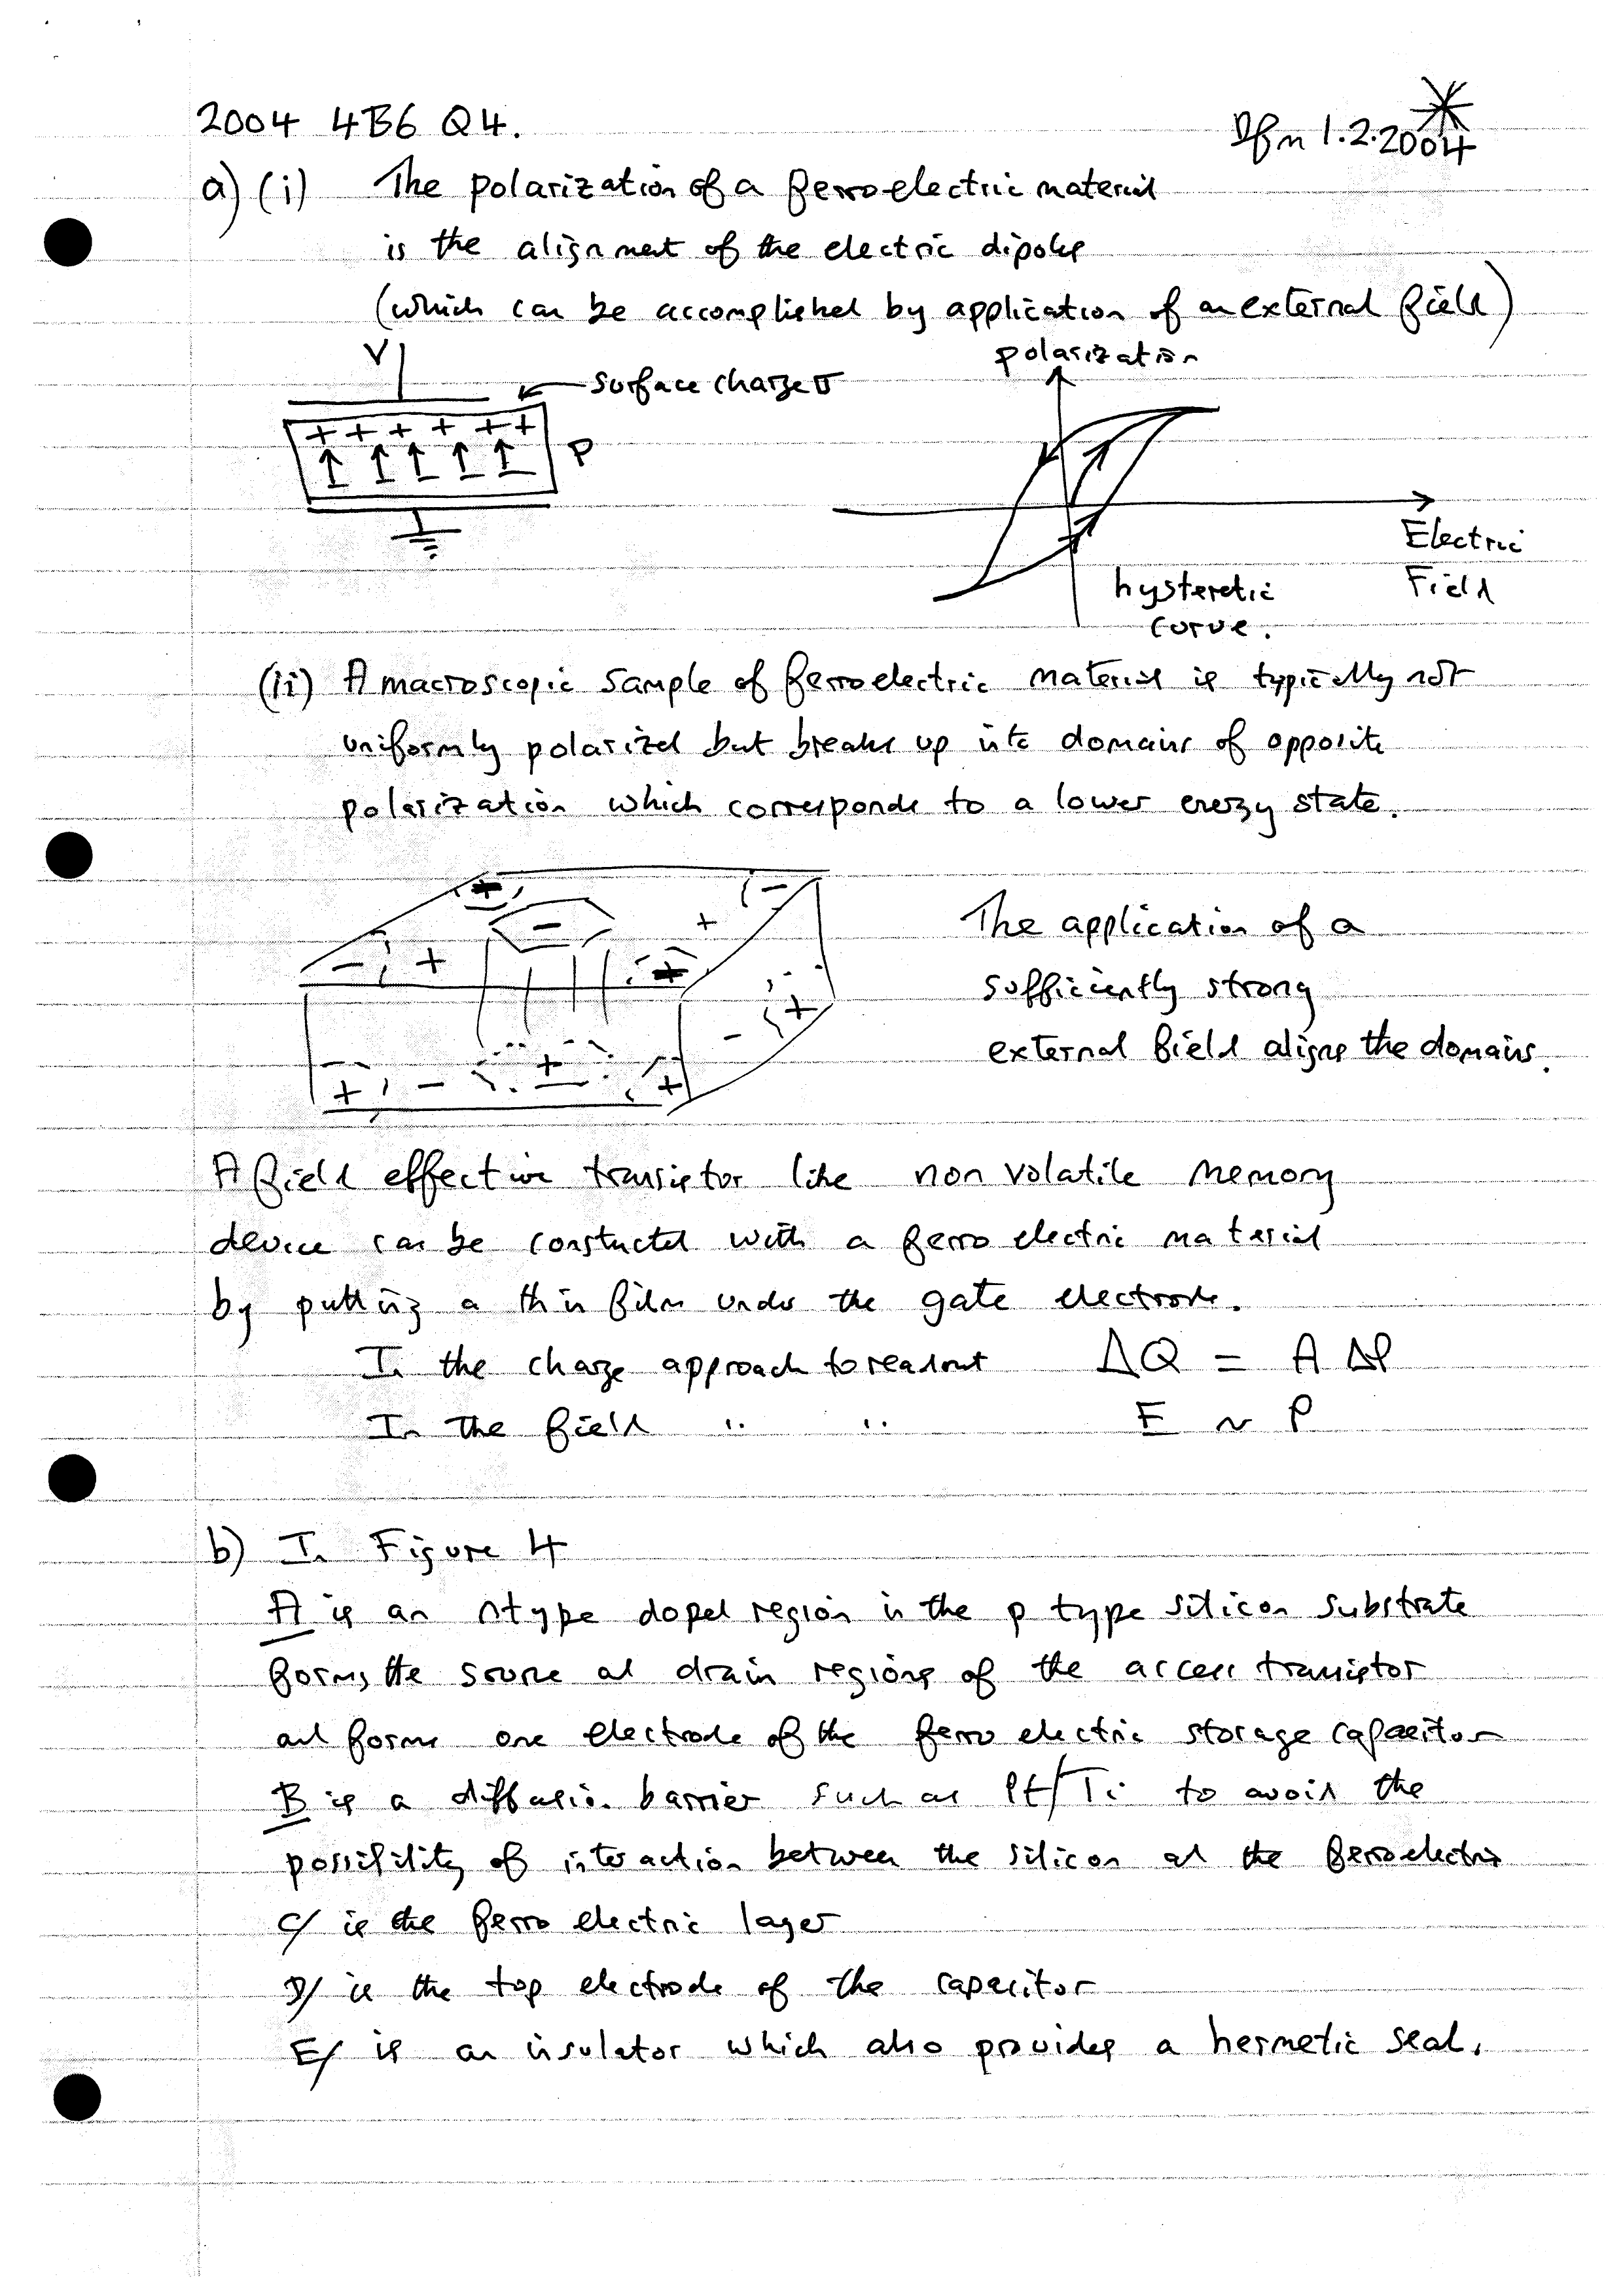 2004 4B6 Q4.
Dfm 1.2.2004
a) (i) The polarization of a ferroelectric material
is the alignment of the electric dipoles
(which can be accomplished by application of an external field)
V
surface charge σ
+ + + + + +
P
polarization
Electric
Field
hysteretic
curve.
(ii) A macroscopic sample of ferroelectric material is typically not
uniformly polarized but breaks up into domains of opposite
polarization which corresponds to a lower energy state.
+ -
-
- + + +
- +
+ - + +
The application of a
sufficiently strong
external field aligns the domains.
A field effective transistor like non volatile memory
device can be constucted with a ferro electric material
by putting a thin film under the gate electrode.
In the charge approach to readout ΔQ = A ΔP
In the field " " E ~ P
b) In Figure 4
A is an n type doped region in the p type silicon substrate
forms the source and drain regions of the access transistor
and forms one electrode of the ferro electric storage capacitor
B is a diffusion barrier such as Pt/Ti to avoid the
possibility of interaction between the silicon and the ferroelectric
C/ is the ferro electric layer
D/ is the top electrode of the capacitor
E/ is an insulator which also provides a hermetic seal.